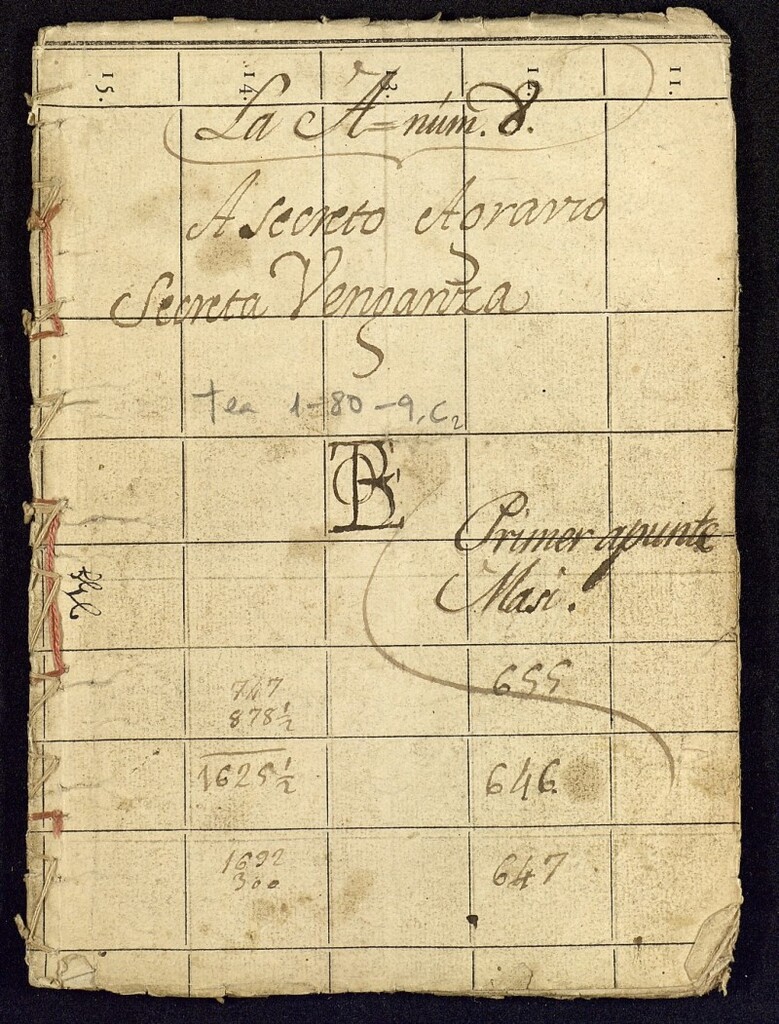 15. 14. 13. 12. 11.
La A = núm. 8.
A secreto Agravio
Secreta Venganza
tea 1-80-9, C2
Primer apunte
Masi.
655
747
878½
1625½
646
1692
300
647